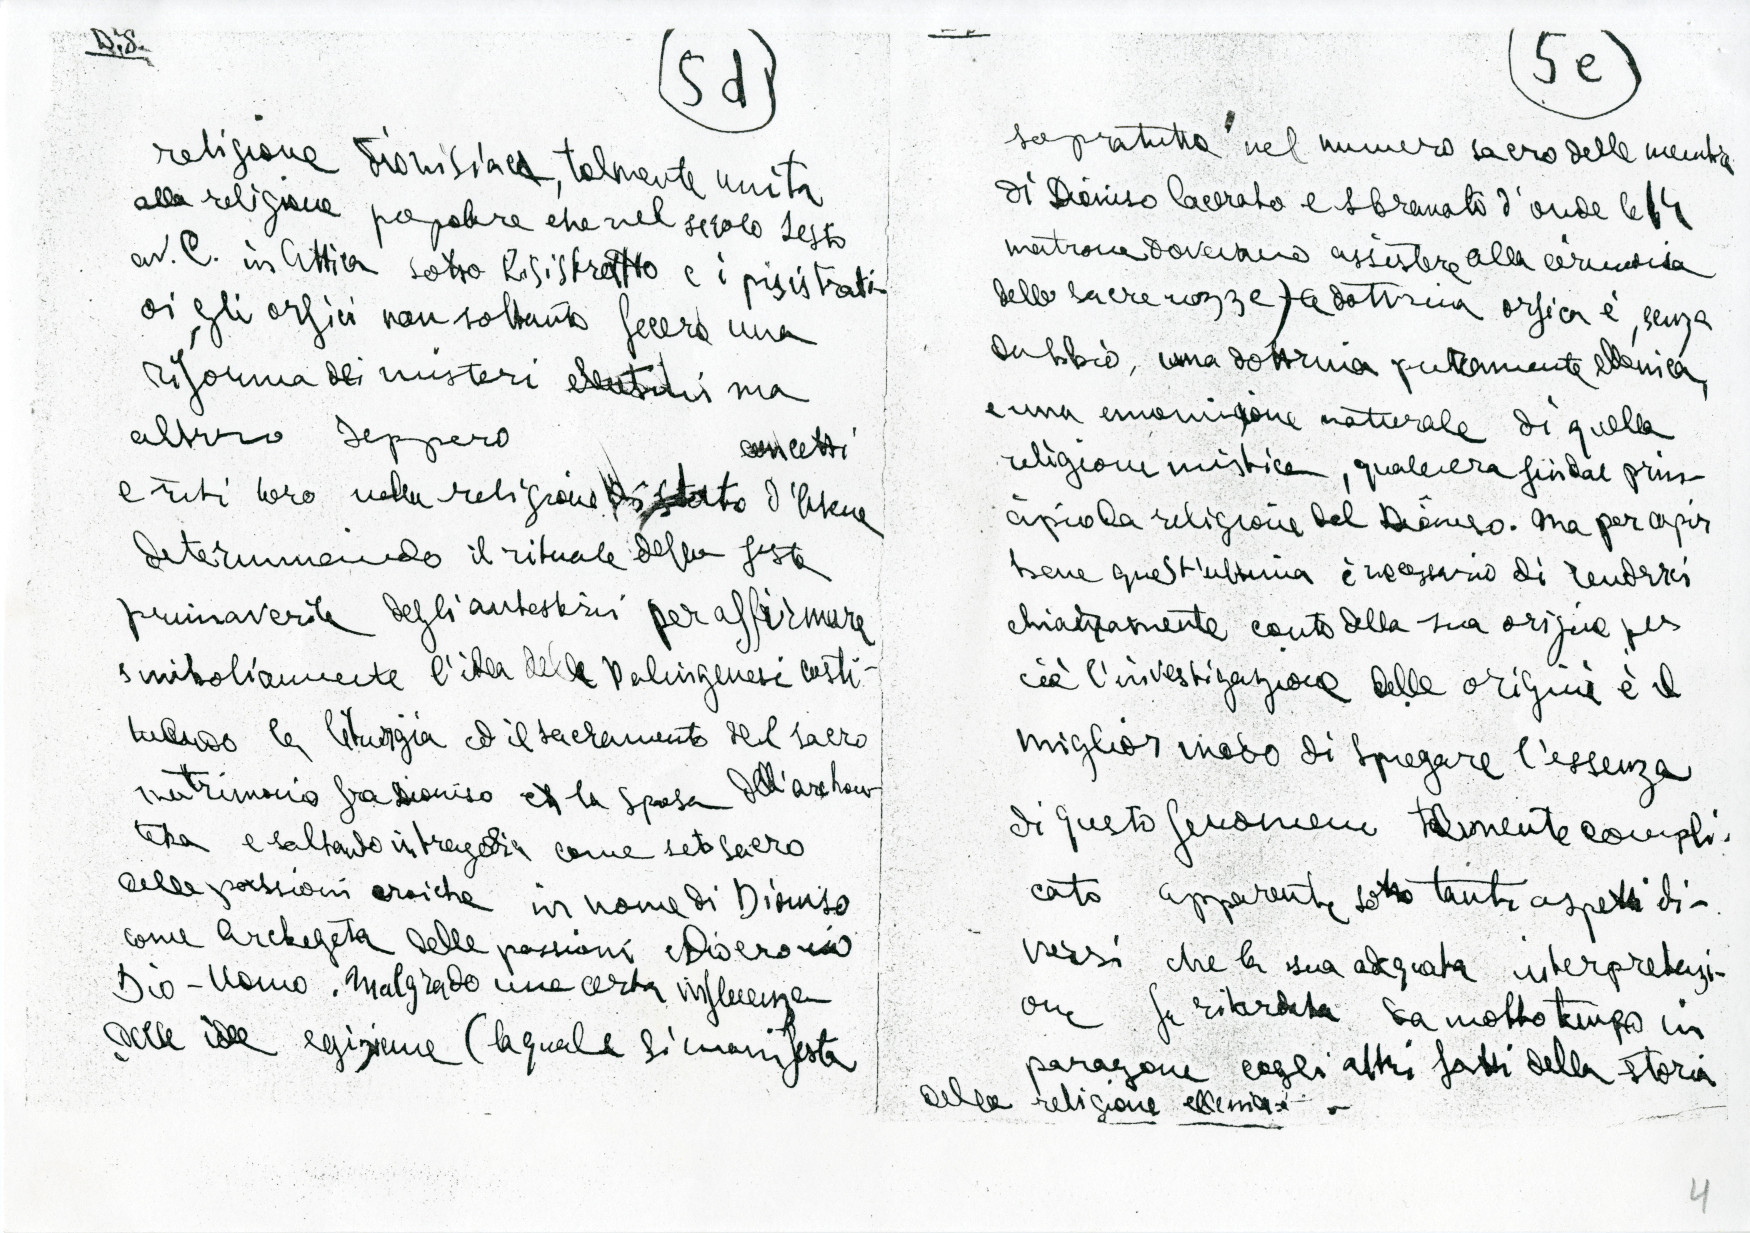 D.S.
5d
religione dionisiaca, talmente unita
alla religione popolare che nel secolo sesto
av. C. in Attica sotto Pisistratto e i pisistrati-
di gli orfici non soltanto fecero una
riforma dei misteri eleusini ma
altresì seppero
concetti
e riti loro nella religione di stato d'Atene
determinando il rituale della festa
primaverile degli antesterii per affirmare
simboliamente l'idea della Palingenesi costi-
tuendo la liturgia ed il sacramento del sacro
matrimonio fra Dioniso e la sposa dell'archon-
e saltando in tragedia come sacro
delle passioni eroiche in nome di Dioniso
come Archegeta delle passioni e Dio eroico
Dio-Uomo. Malgrado una certa influenza
delle idee egiziane (la quale si manifesta
5e
sopratutto nel numero sacro delle membra
di Dioniso lacerato e sbranato d'onde le 14
matrone dovevano assistere alla cerimonia
delle sacre nozze) la dottrina orfica è, senza
dubbio, una dottrina puramente ellenica,
e una emanazione naturale di quella
religione mistica, quale era fin dal prin-
cipio la religione del Dioniso. Ma per capir
bene quest'ultima è necessario di renderci
chiaramente conto della sua origine per
ciò l'investigazione delle origini è il
miglior modo di spiegare l'essenza
di questo fenomeno talmente compli-
cato apparente sotto tanti aspetti di-
versi che la sua adequata interpretazi-
one fu ritardata da molto tempo in
paragone cogli altri fatti della storia
della religione ellenica. -
4